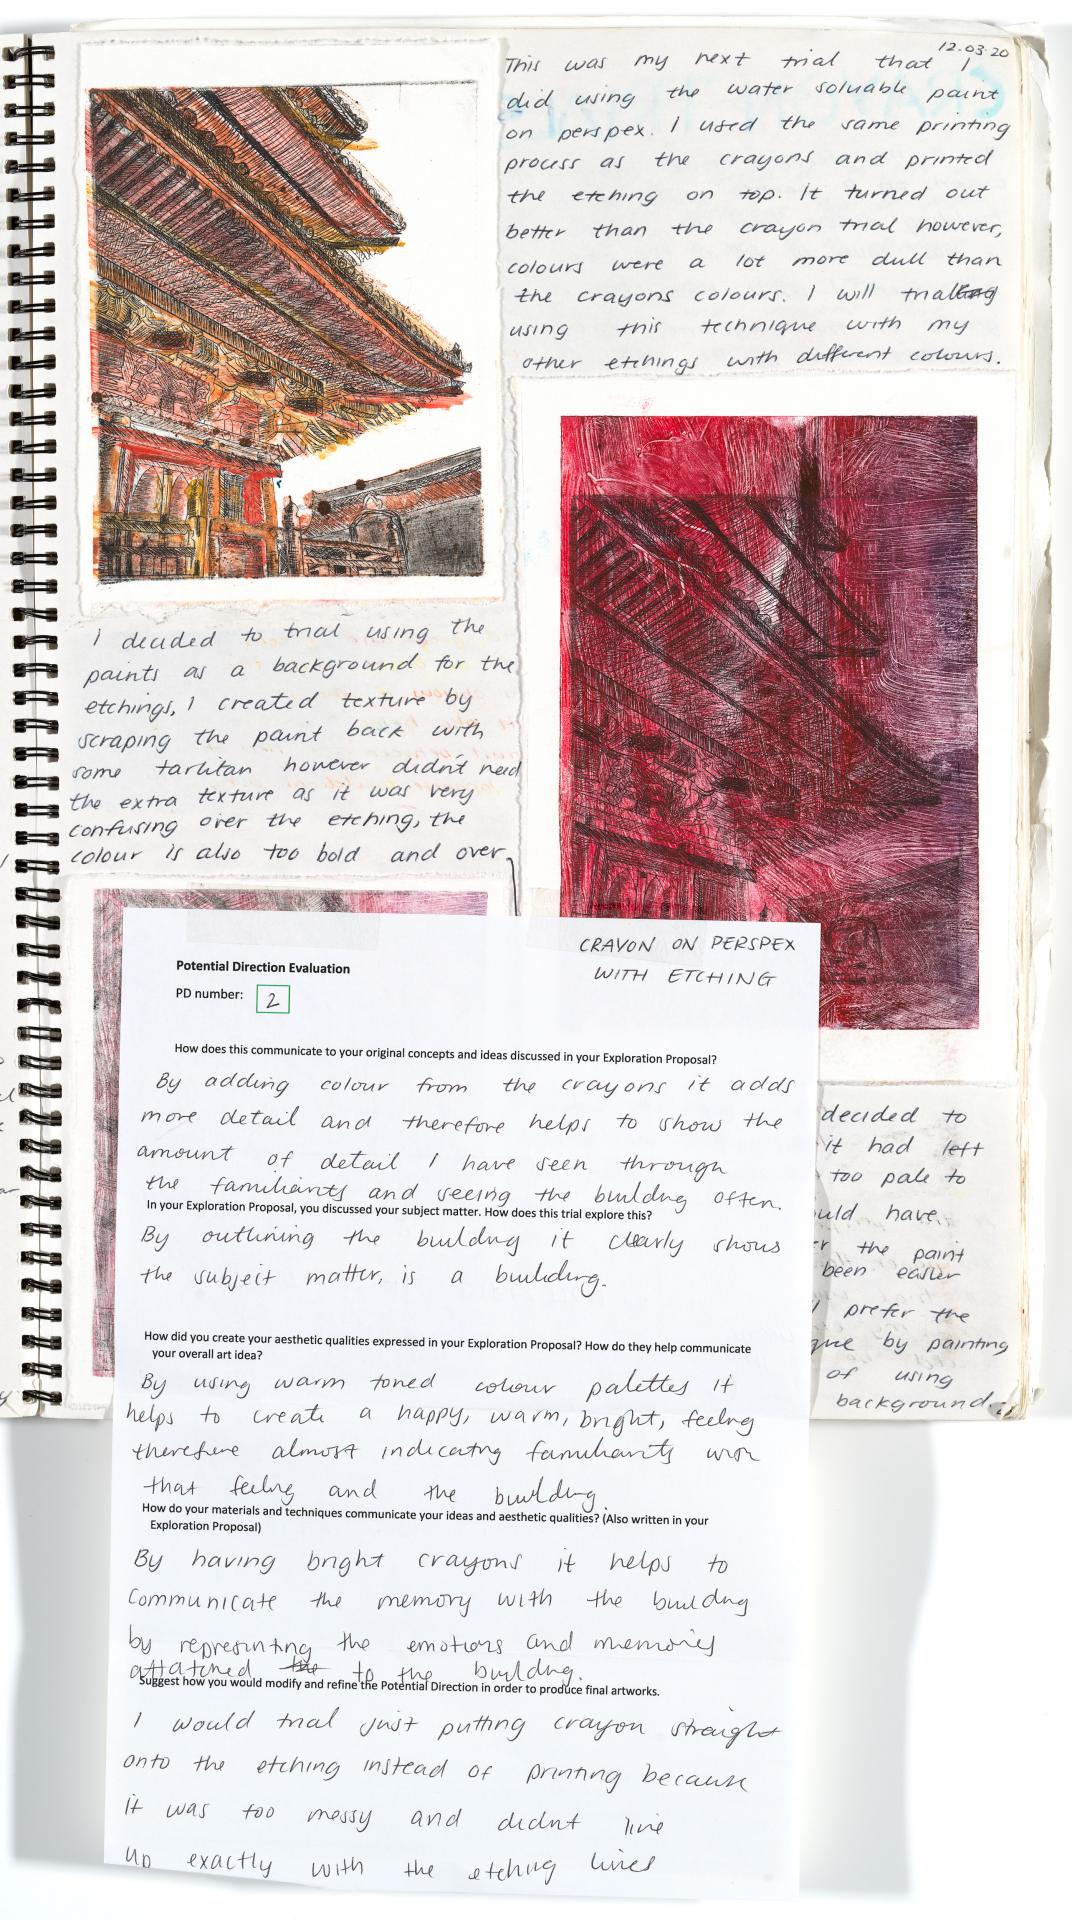 12.03.20
This was my next trial that I
did using the water soluable paint
on perspex. I used the same printing
process as the crayons and printed
the etching on top. It turned out
better than the crayon trial however,
colours were a lot more dull than
the crayons colours. I will trial
using this technique with my
other etchings with different colours.
I decided to trial using the
paints as a background for the
etchings, I created texture by
scraping the paint back with
some tarlitan however didn't need
the extra texture as it was very
confusing over the etching, the
colour is also too bold and over
CRAYON ON PERSPEX
WITH ETCHING
Potential Direction Evaluation
PD number: 2
How does this communicate to your original concepts and ideas discussed in your Exploration Proposal?
By adding colour from the crayons it adds
more detail and therefore helps to show the
amount of detail I have seen through
the familiarity and seeing the building often.
In your Exploration Proposal, you discussed your subject matter. How does this trial explore this?
By outlining the building it clearly shows
the subject matter, is a building.
How did you create your aesthetic qualities expressed in your Exploration Proposal? How do they help communicate
your overall art idea?
By using warm toned colour palettes it
helps to create a happy, warm, bright, feeling
therefore almost indicating familiarity with
that feeling and the building.
How do your materials and techniques communicate your ideas and aesthetic qualities? (Also written in your
Exploration Proposal)
By having bright crayons it helps to
communicate the memory with the building
by representing the emotions and memories
attatched to the building.
Suggest how you would modify and refine the Potential Direction in order to produce final artworks.
I would trial just putting crayon straight
onto the etching instead of printing because
it was too messy and didnt line
up exactly with the etching lines
decided to
it had left
too pale to
uld have
the paint
been easier
I prefer the
que by painting
of using
background.